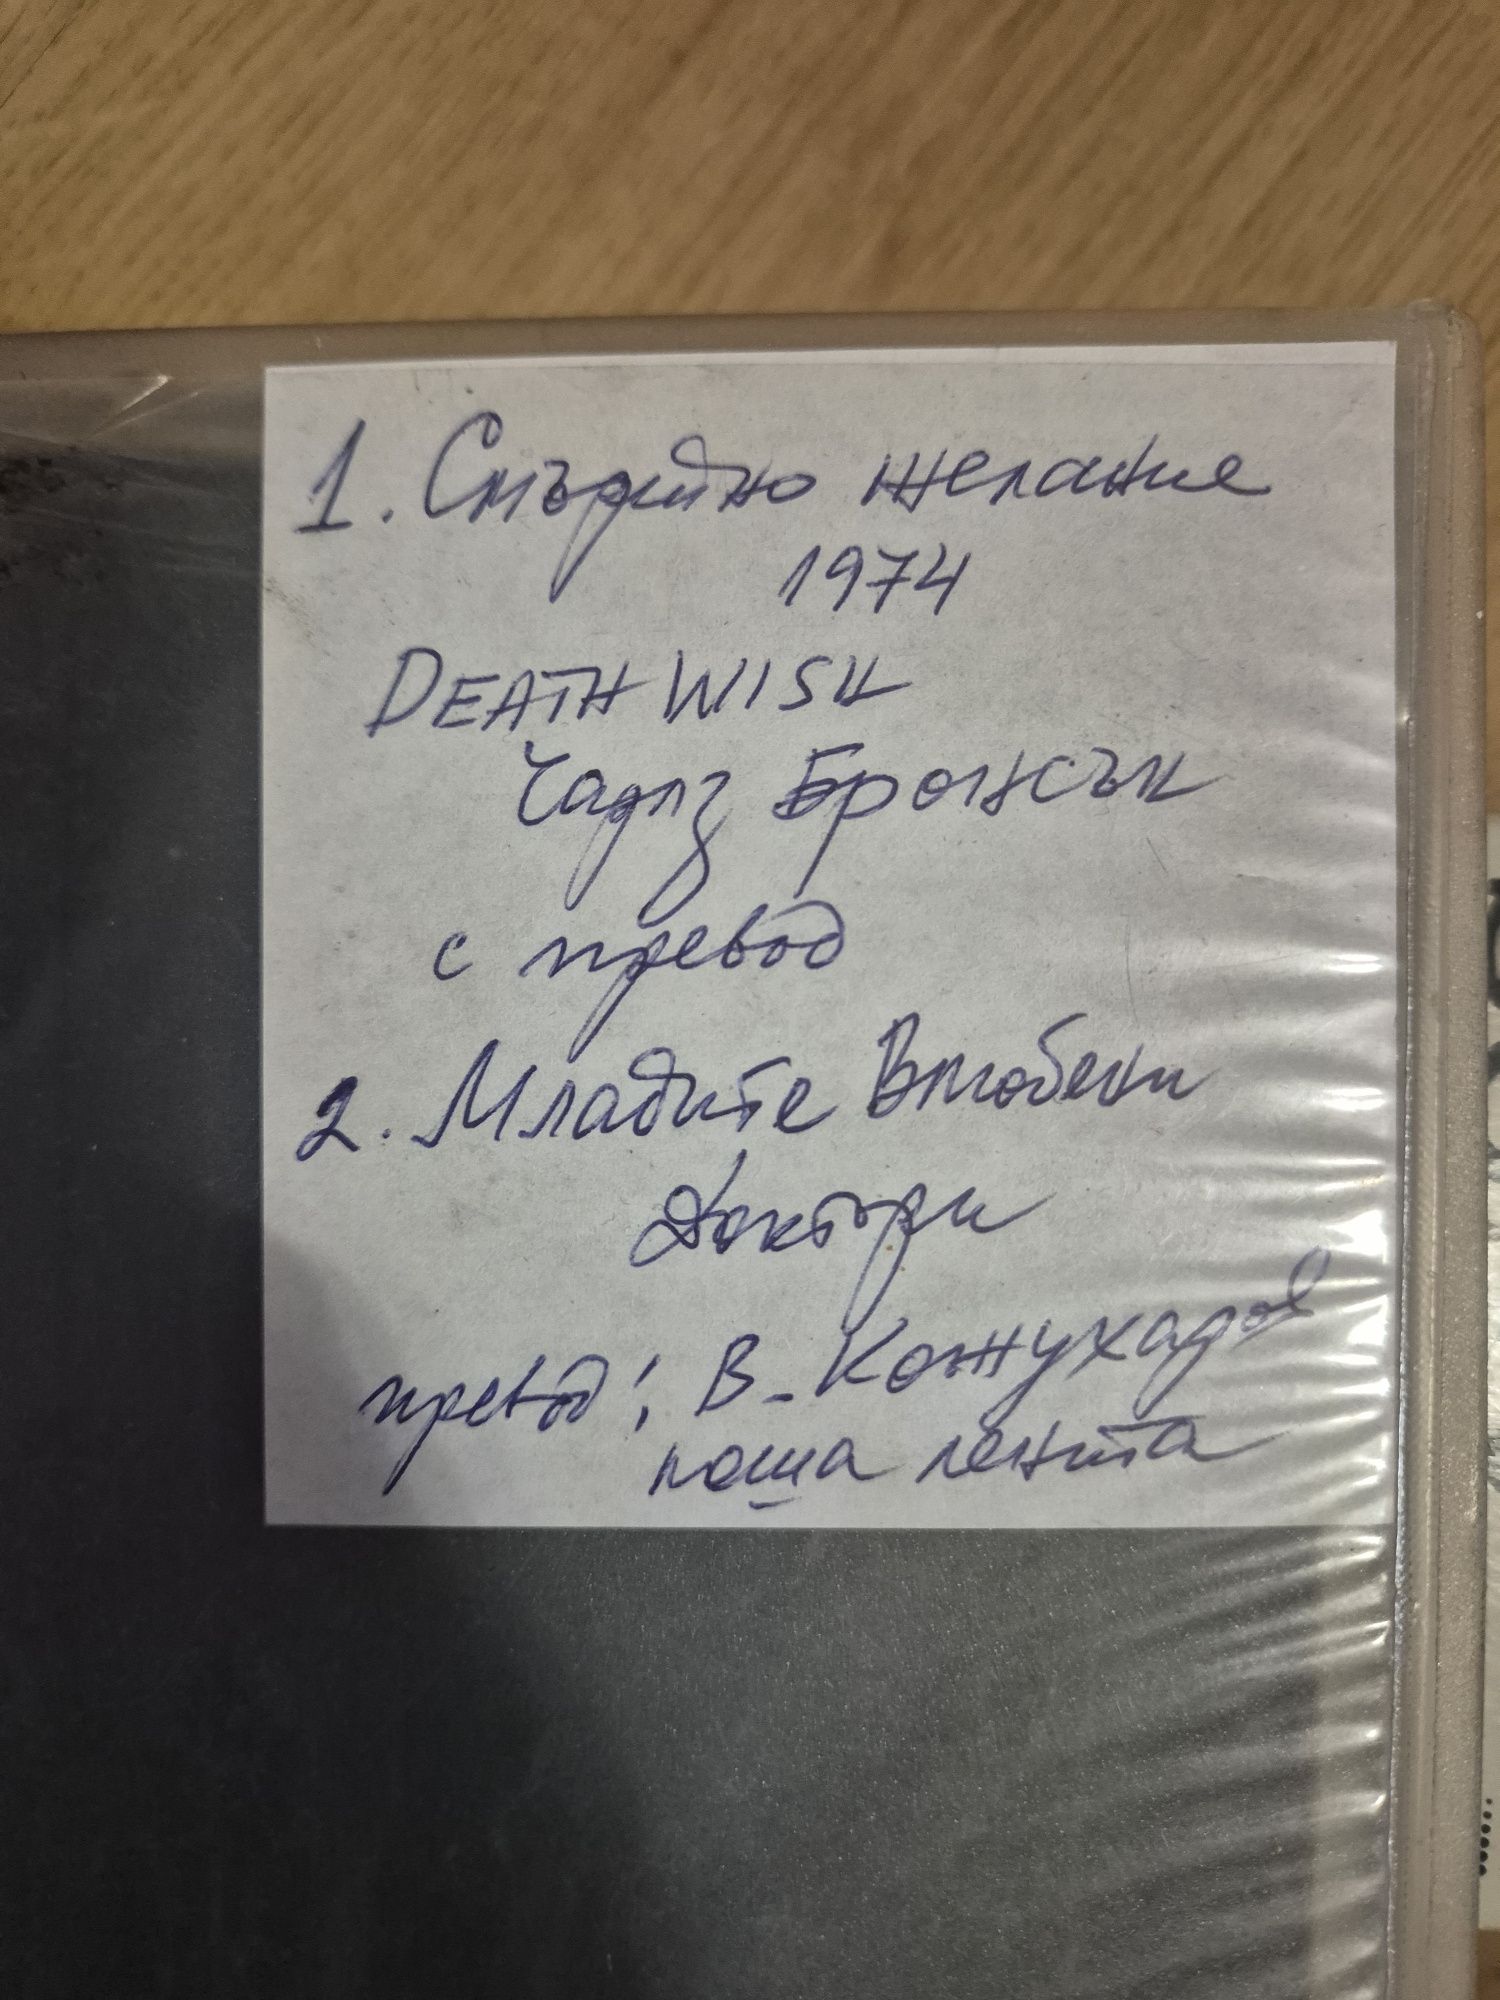 1. Смъртно желание
1974
DEATH WISH
Чарлз Бронсън
с превод
2. Младите Влюбени
Доктори
превод: В. Кожухаров
наша лента